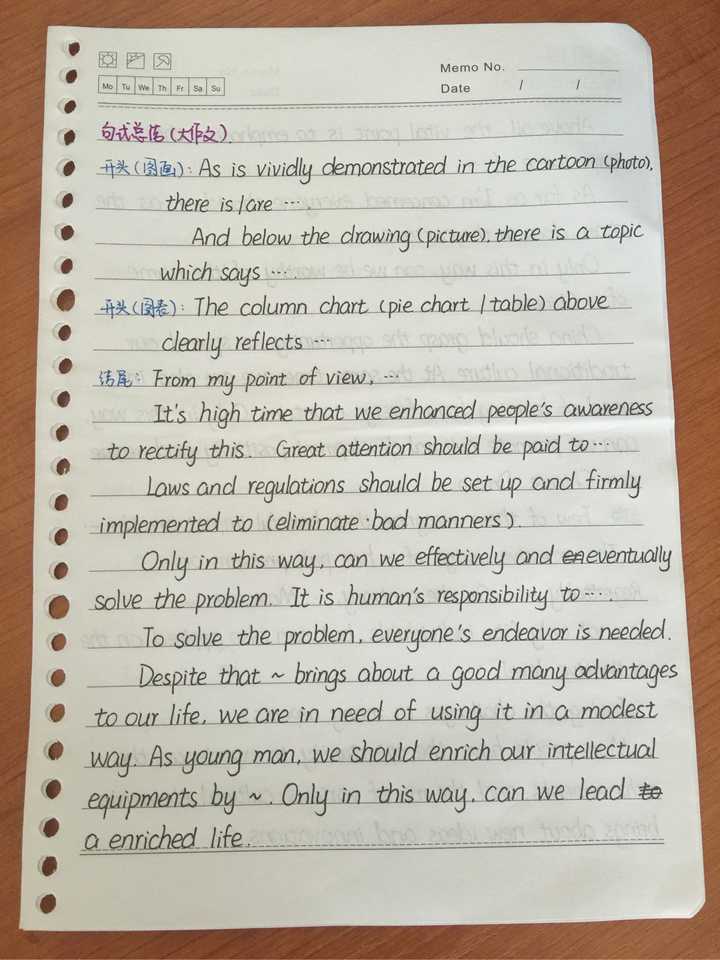 Memo No.
Mo Tu We Th Fr Sa Su
Date / /
句式总结(大作文).
开头(图画): As is vividly demonstrated in the cartoon (photo),
there is/are ……
And below the drawing (picture), there is a topic
which says …….
开头(图表): The column chart (pie chart / table) above
clearly reflects ……
结尾: From my point of view, ……
It's high time that we enhanced people's awareness
to rectify this. Great attention should be paid to……
Laws and regulations should be set up and firmly
implemented to (eliminate · bad manners).
Only in this way, can we effectively and eventually
solve the problem. It is human's responsibility to …….
To solve the problem, everyone's endeavor is needed.
Despite that ~ brings about a good many advantages
to our life, we are in need of using it in a modest
way. As young man, we should enrich our intellectual
equipments by ~. Only in this way, can we lead
a enriched life.